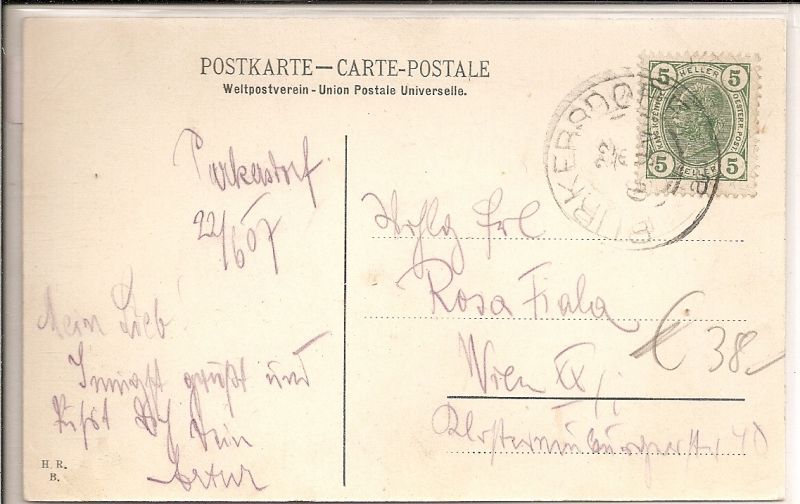 POSTKARTE — CARTE-POSTALE
Weltpostverein - Union Postale Universelle.
5 HELLER 5
KAIS. KOENIGL. OESTERR. POST.
5 HELLER 5
PURKERSDORF
Purkersdorf
22/6 07
Mein Lieb
Innigst grüßt und
küßt Dich Dein
Artur
Frl
Rosa Fiala
Wien XX/1
Klosterneuburgerstr. 40
€ 38
H. R.
B.